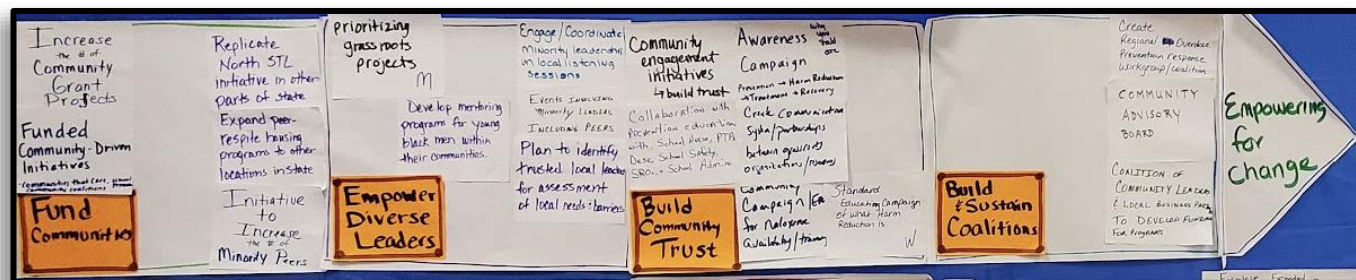 Increase
the # of
Community
Grant
Projects
Funded
Community-Driven
Initiatives
-communities that care,
community coalitions
Fund
Communities
Replicate
North STL
initiative in other
parts of state
Expand peer-
respite housing
programs to other
locations in state
Initiative
to
Increase
the # of
Minority Peers
prioritizing
grass roots
projects
M
Develop mentoring
programs for young
black men within
their communities.
Empower
Diverse
Leaders
Engage/Coordinate
Minority leadership
in local listening
sessions
Events Involving
Minority Leaders
Including Peers
Plan to identify
trusted local leaders
for assessment
of local needs & barriers
Community
engagement
initiatives
↳ build trust
Collaboration with
Prevention education
with, School Nurse, PTA
Dese, School Safety,
SRO, School Admin
Build
Community
Trust
Awareness
Campaign
why
you
should
care
Prevention → Harm Reduction
→ Treatment → Recovery
Create Communication
System/partnerships
between agencies
organizations/
Community
Campaign/
for Naloxone
availability/training
Standard
Education Campaign
of what Harm
Reduction is
W
Build
& Sustain
Coalitions
Create
Regional Overdose
Prevention response
workgroup/coalition
COMMUNITY
ADVISORY
BOARD
COALITION OF
COMMUNITY LEADERS
& LOCAL BUSINESS
TO DEVELOP FUNDING
FOR PROGRAMS
Empowering
for
Change